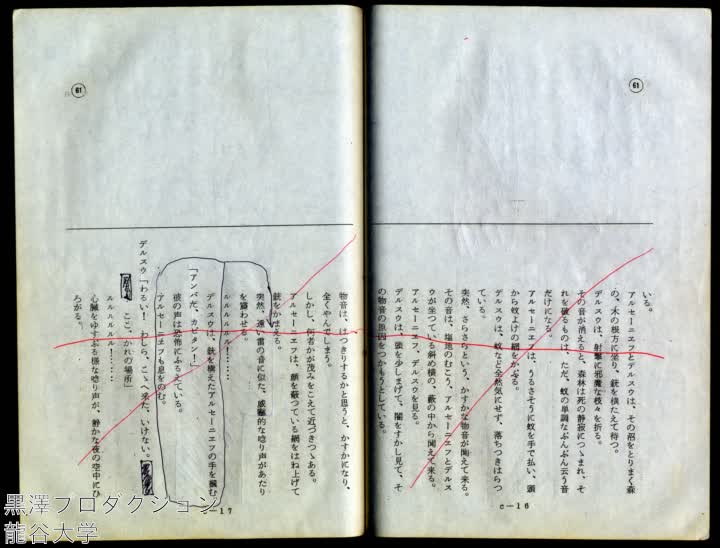 61
いる。
アルセーニエフとデルスウは、その沼をとりまく森
の、木の根方に坐り、銃を横たえて待つ。
デルスウは、射撃に邪魔な枝々を折る。
その音が消えると、森林は死の静寂につゝまれ、そ
れを破るものは、たゞ、蚊の単調なぶんぶん云う音
だけになる。
アルセーニエフは、うるさそうに蚊を手で払い、頭
から蚊よけの網をかぶる。
デルスウは、蚊など全然気にせず、落ちつきはらつ
ている。
突然、さらさらという、かすかな物音が聞えて来る。
その音は、塩地のむこう、アルセーニエフとデルス
ウが坐つている斜め横の、藪の中から聞えて来る。
アルセーニエフ、デルスウを見る。
デルスウは、頭を少しまげて、闇をすかし見て、そ
の物音の原因をつかもうとしている。
c—16
61
物音は、はつきりするかと思うと、かすかになり、
全くやんでしまう。
しかし、何者かが茂みをこえて近づきつゝある。
アルセーニエフは、顔を蔽つている網をはね上げて
銃をかまえる。
突然、遠い雷の音に似た、威嚇的な唸り声があたり
を震わせる。
ルルルルルル！……
デルスウは、銃を構えたアルセーニエフの手を掴む。
「アンバだ、カピタン！」
彼の声は恐怖にふるえている。
アルセーニエフも息をのむ。
デルスウ「わるい！　わしら、こゝへ来た、いけない。
ここ、かれの場所」
ルルルルルル！……
心臓をゆすぶる様な唸り声が、静かな夜の空中にひ
ろがる。
c—17
黒澤プロダクション
龍谷大学